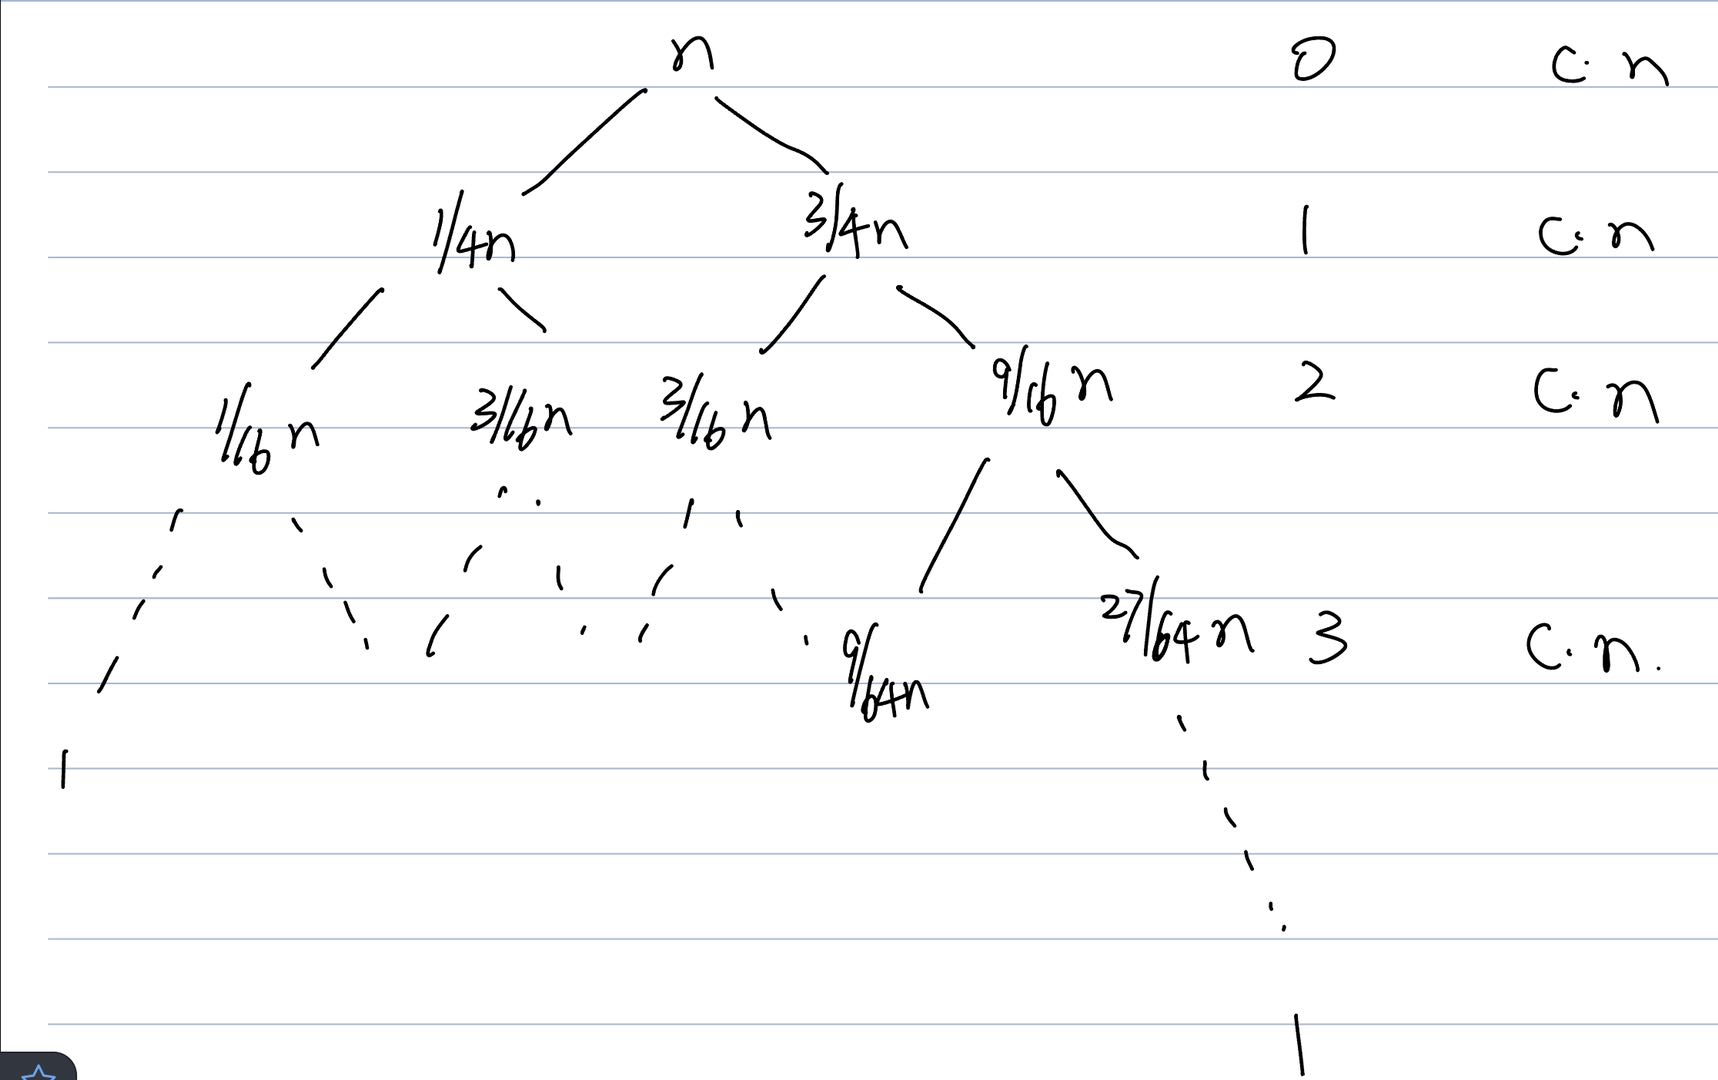 n 0 c. n
1/4n 3/4n 1 c. n
1/16 n 3/16n 3/16 n 9/16 n 2 c. n
9/64n 27/64 n 3 c. n.
1
1